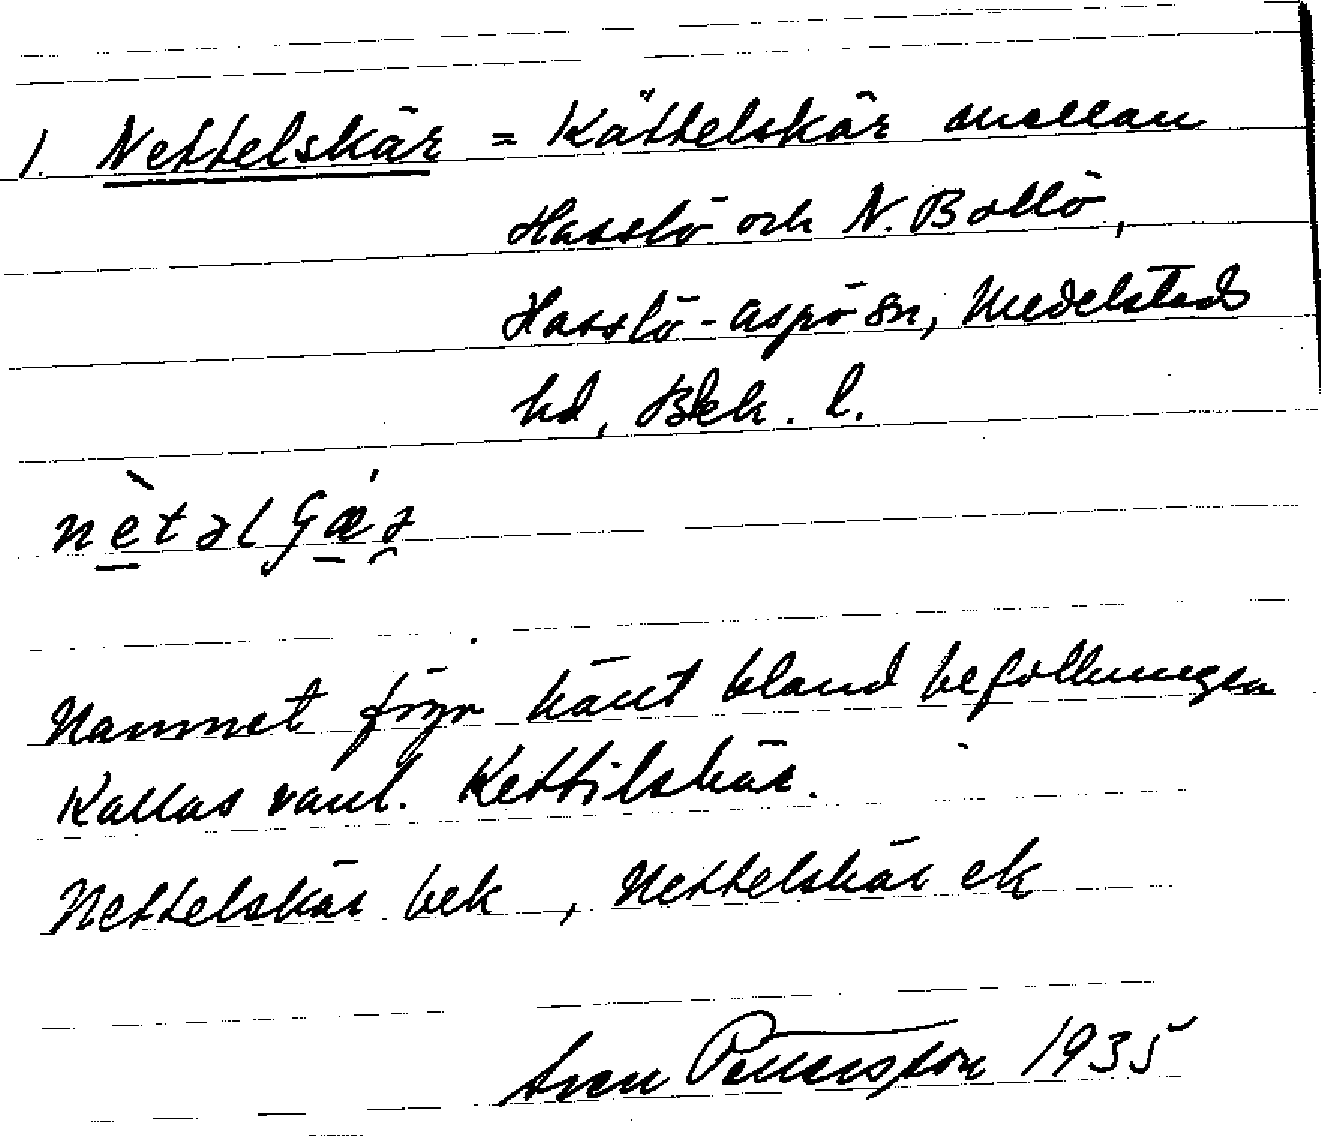 1. Nettelskär = Kättelskär mellan
Hasslö och N. Bollö,
Hasslö-Aspö sn, Medelstads
hd, Blek. l.
nètəlʃæ̀ə
Namnet föga känt bland befolkningen
Kallas vanl. Kettilskär.
Nettelskär bek, Nettelskär ek
Sven Pettersson 1935